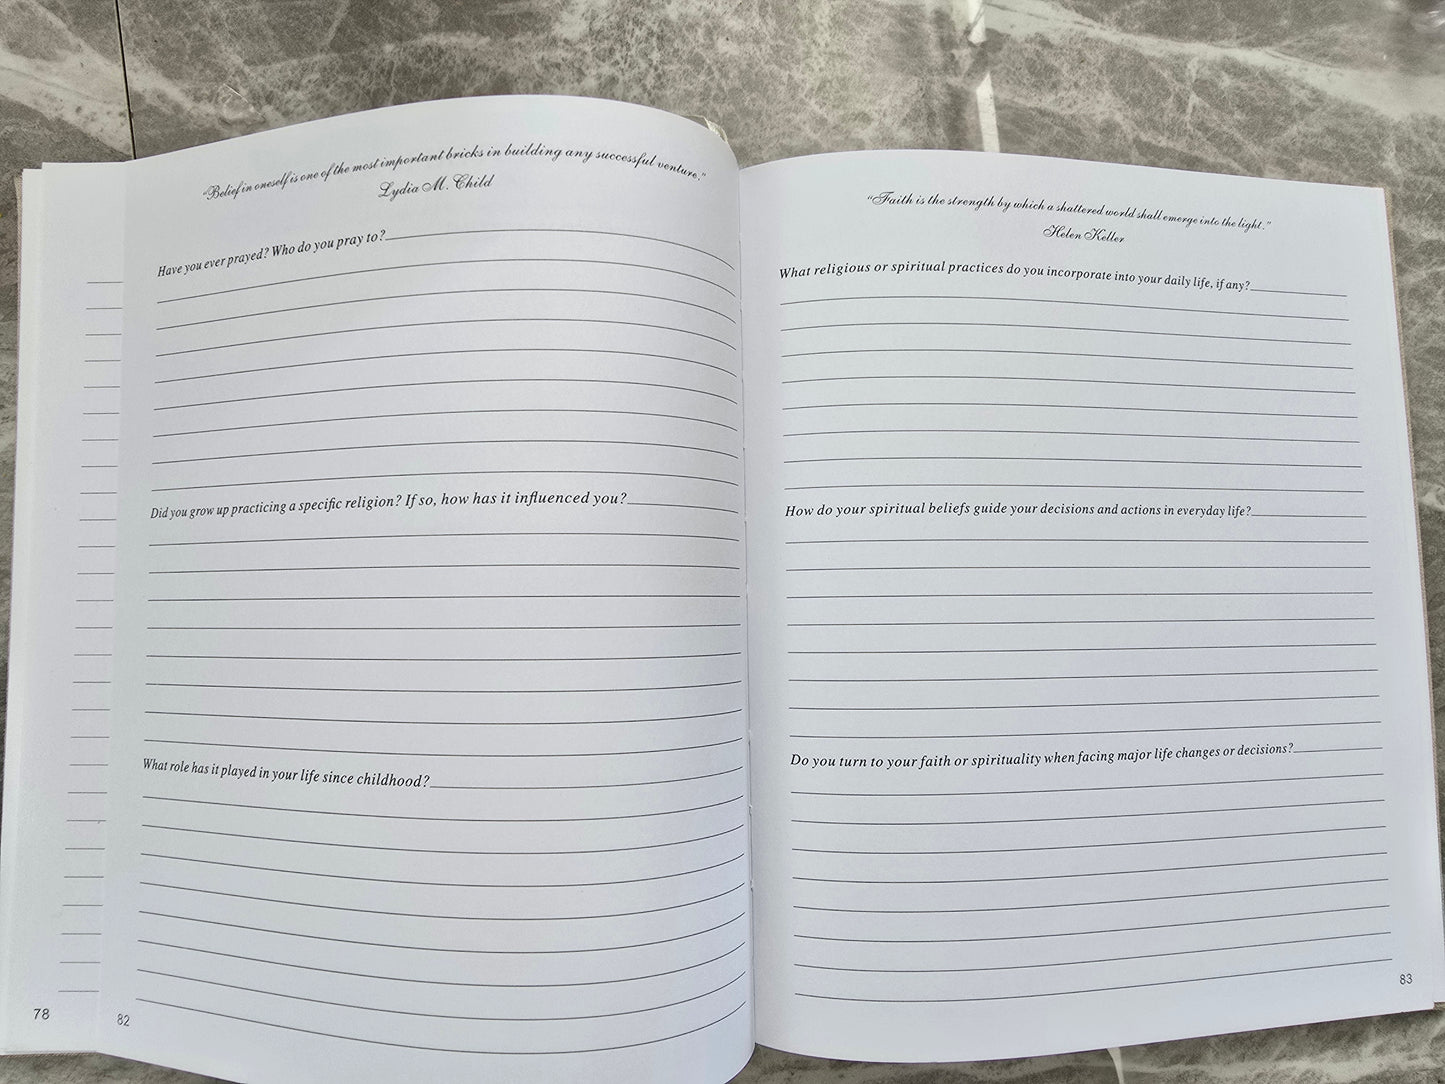 "Belief in oneself is one of the most important bricks in building any successful venture."
Lydia M. Child
Have you ever prayed? Who do you pray to?
Did you grow up practicing a specific religion? If so, how has it influenced you?
What role has it played in your life since childhood?
78
82
"Faith is the strength by which a shattered world shall emerge into the light."
Helen Keller
What religious or spiritual practices do you incorporate into your daily life, if any?
How do your spiritual beliefs guide your decisions and actions in everyday life?
Do you turn to your faith or spirituality when facing major life changes or decisions?
83